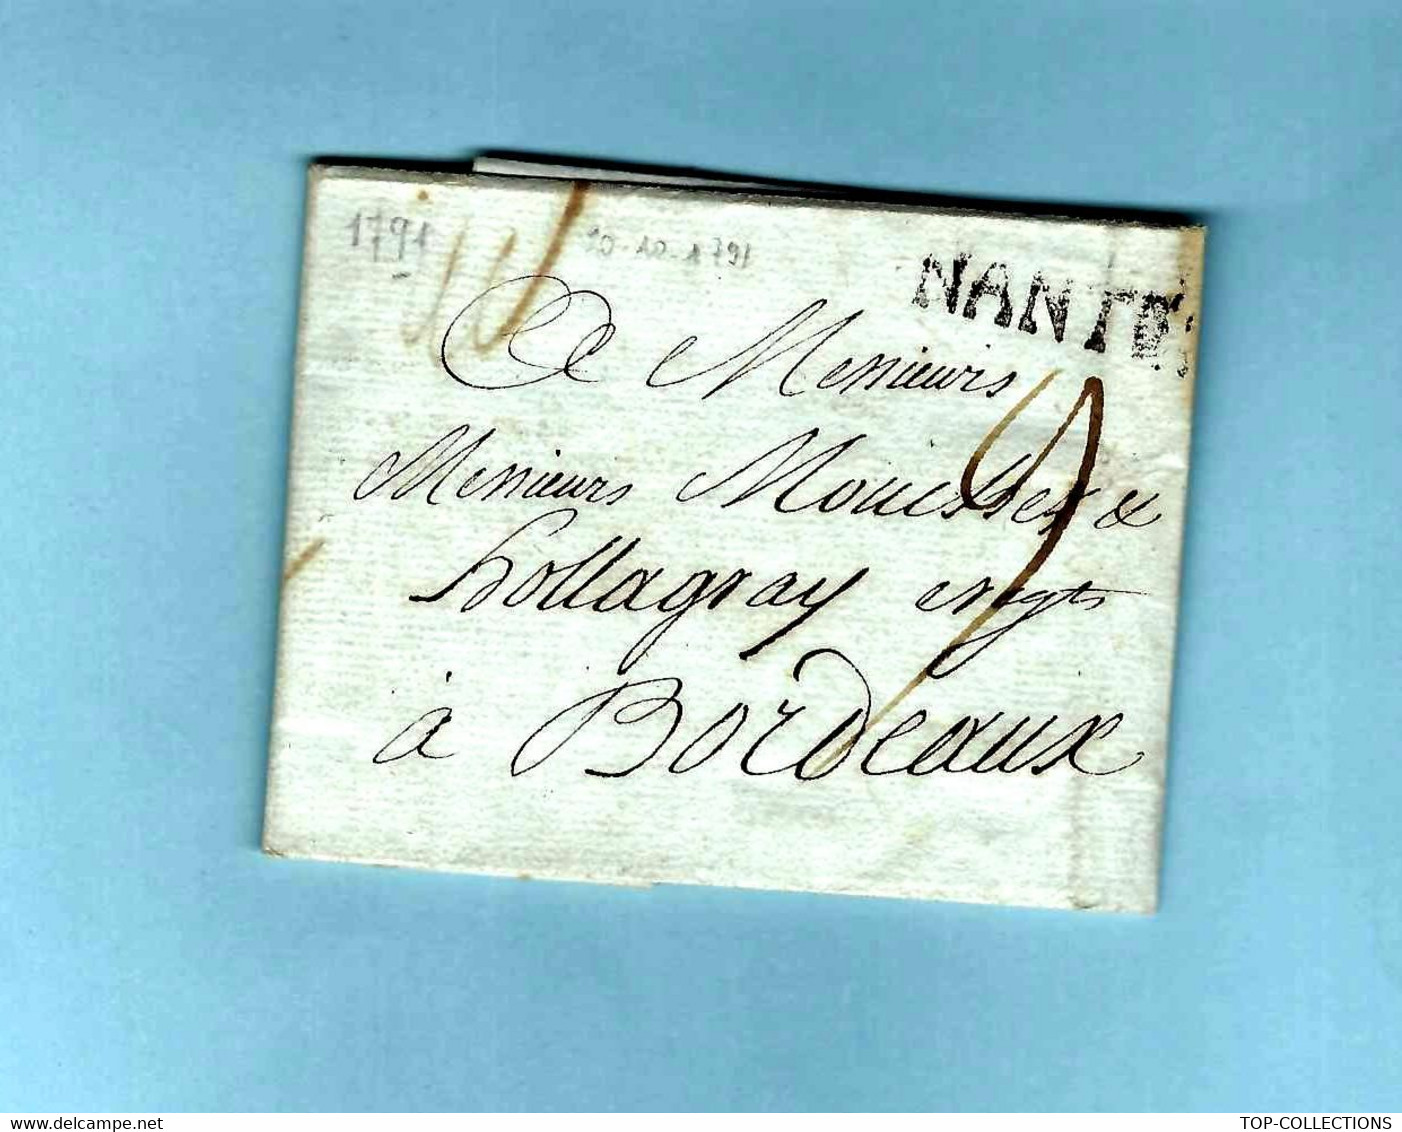 1791
20-10-1791
NANTES
A Messieurs
Messieurs Mouisses &
hollagray negts
à Bordeaux
9
www.delcampe.net
TOP-COLLECTIONS